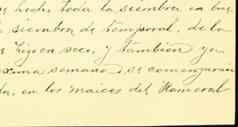 hecho toda la siembra en bue
siembra de temporal, de la
hize en seco, y tambien ya
xima semana, se comenzarán
da, en los maices del Romeral